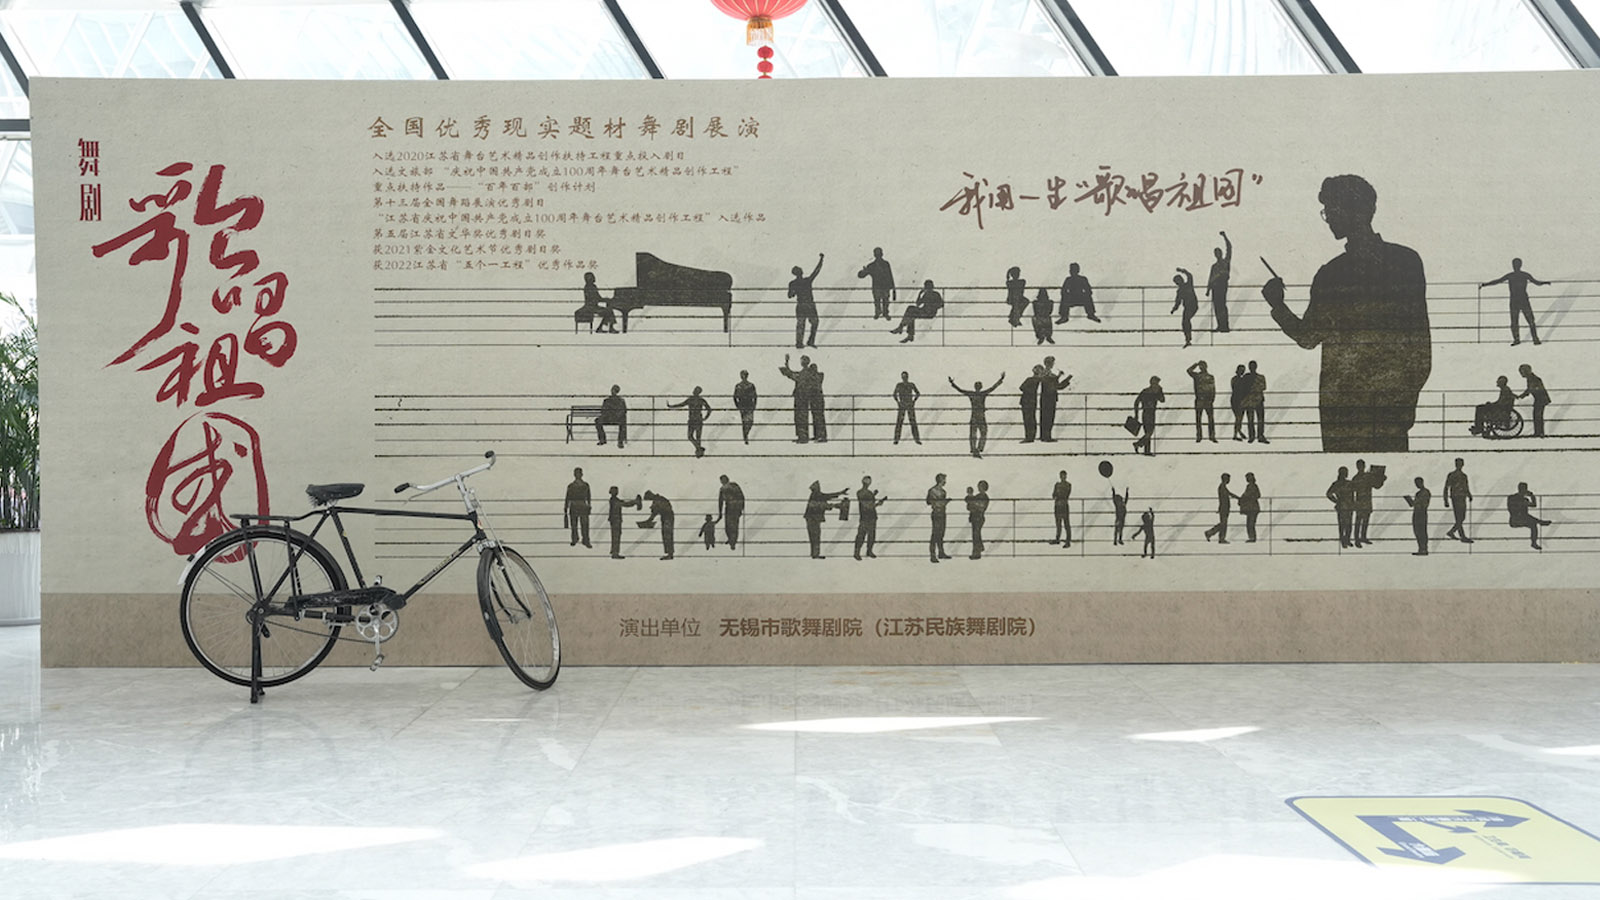 舞剧
歌唱祖国
全国优秀现实题材舞剧展演
入选2020江苏省舞台艺术精品创作扶持工程重点投入剧目
入选文旅部“庆祝中国共产党成立100周年舞台艺术精品创作工程”
重点扶持作品——“百年百部”创作计划
第十三届全国舞蹈展演优秀剧目
“江苏省庆祝中国共产党成立100周年舞台艺术精品创作工程”入选作品
第五届江苏省文华奖优秀剧目奖
获2021紫金文化艺术节优秀剧目奖
获2022江苏省“五个一工程”优秀作品奖
我用一生“歌唱祖国”
演出单位 无锡市歌舞剧院（江苏民族舞剧院）